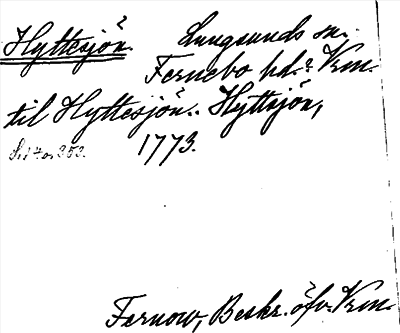 Hyttesjön. Lungsunds sn.
Fernebo hd. Vrm.
til Hyttesjön.. Hyttsjön,
1773.
Fernow, Beskr. öfv. Vrm.